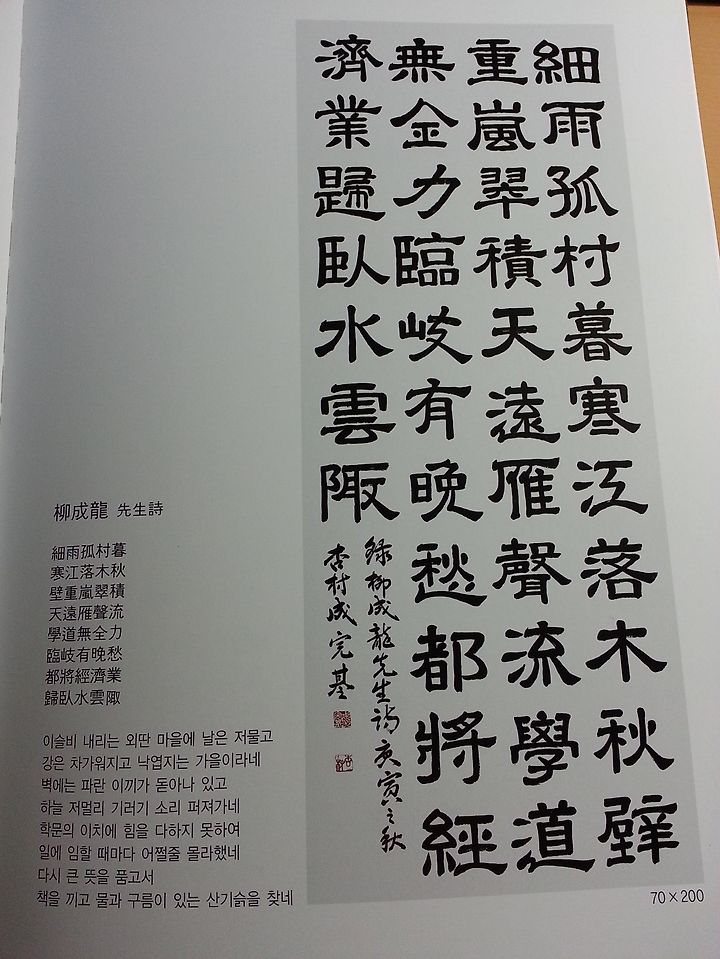 細雨孤村暮寒江落木秋壁
重嵐翠積天遠雁聲流學道
無全力臨岐有晚愁都將經
濟業歸臥水雲陬
錄柳成龍先生詩庚寅之秋
杏村成完基
柳成龍 先生詩
細雨孤村暮
寒江落木秋
壁重嵐翠積
天遠雁聲流
學道無全力
臨岐有晚愁
都將經濟業
歸臥水雲陬
이슬비 내리는 외딴 마을에 날은 저물고
강은 차가워지고 낙엽지는 가을이라네
벽에는 파란 이끼가 돋아나 있고
하늘 저멀리 기러기 소리 퍼져가네
학문의 이치에 힘을 다하지 못하여
일에 임할 때마다 어쩔줄 몰라했네
다시 큰 뜻을 품고서
책을 끼고 물과 구름이 있는 산기슭을 찾네
70×200